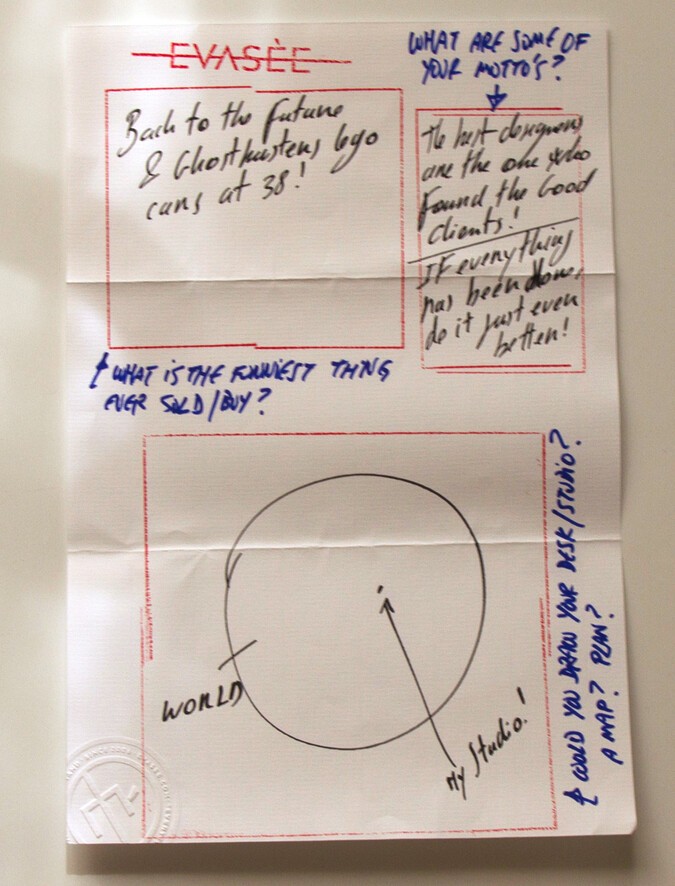 EVASÈE
WHAT ARE SOME OF
YOUR MOTTO'S?
Back to the Future
& Ghostbusters lego
cars at 38!
The best designers
are the one who
Found the Good
clients!
IF everything
has been done,
do it just even
better!
WHAT IS THE FUNNIEST THING
EVER SOLD/BUY?
COULD YOU DRAW YOUR DESK/STUDIO?
A MAP? PLAN?
WORLD
My Studio!